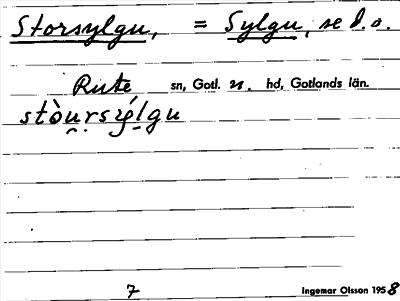 Storsylgu, = Sylgu, se d.o.
Rute sn, Gotl. n. hd, Gotlands län.
stòu̯rsý̯lgu
7 Ingemar Olsson 1958